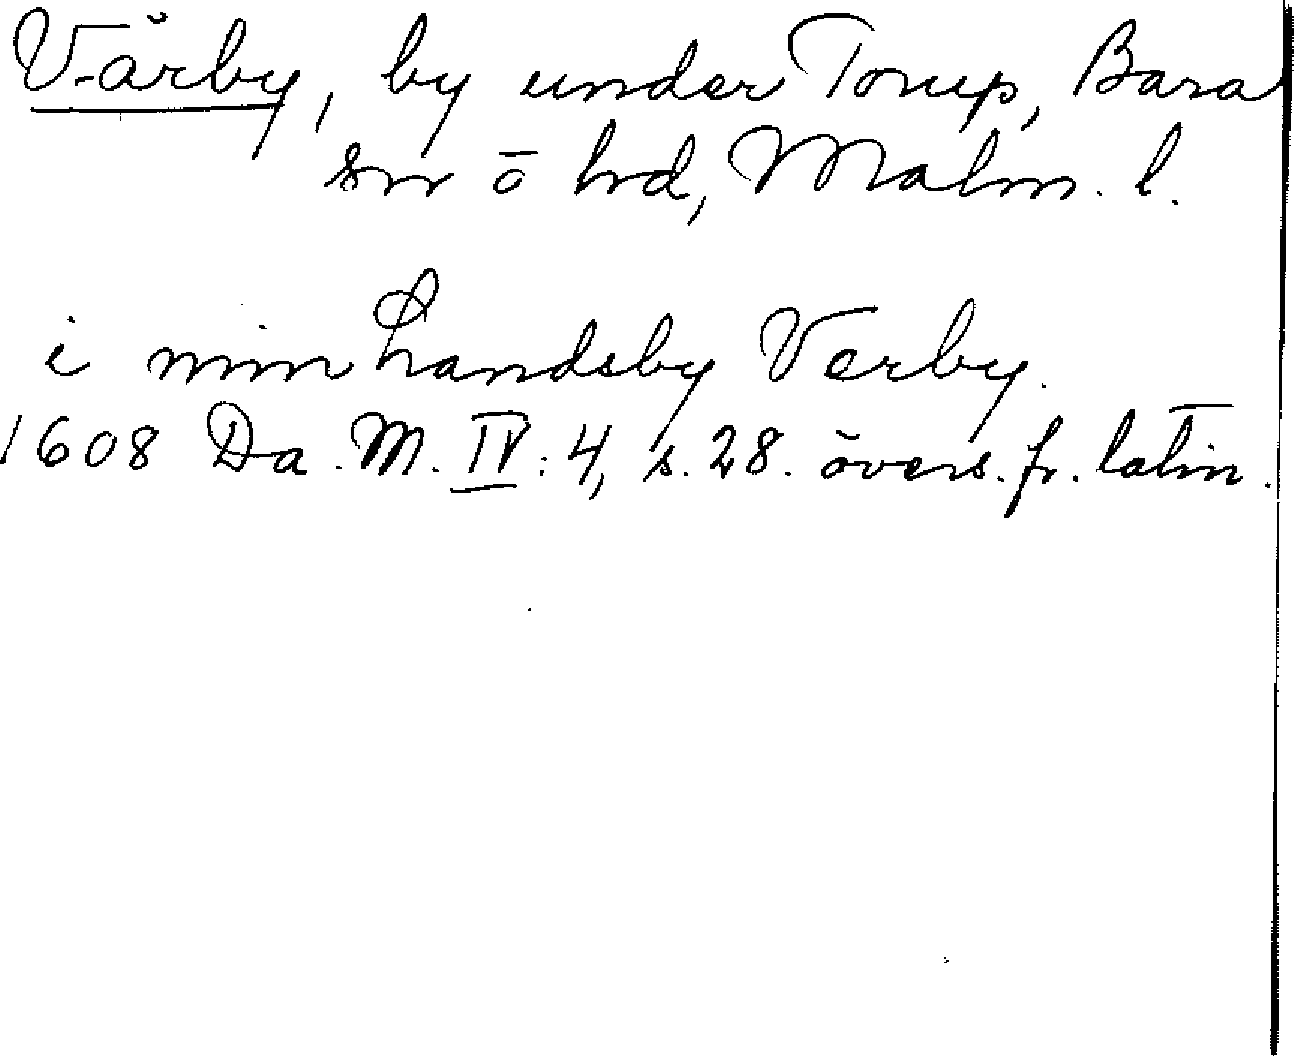 Värby, by under Torup, Bara
sn ō hd, Malm. l.
i min Landsby Verby.
1608 Da. M. IV: 4, s. 28. övers. fr. latin.